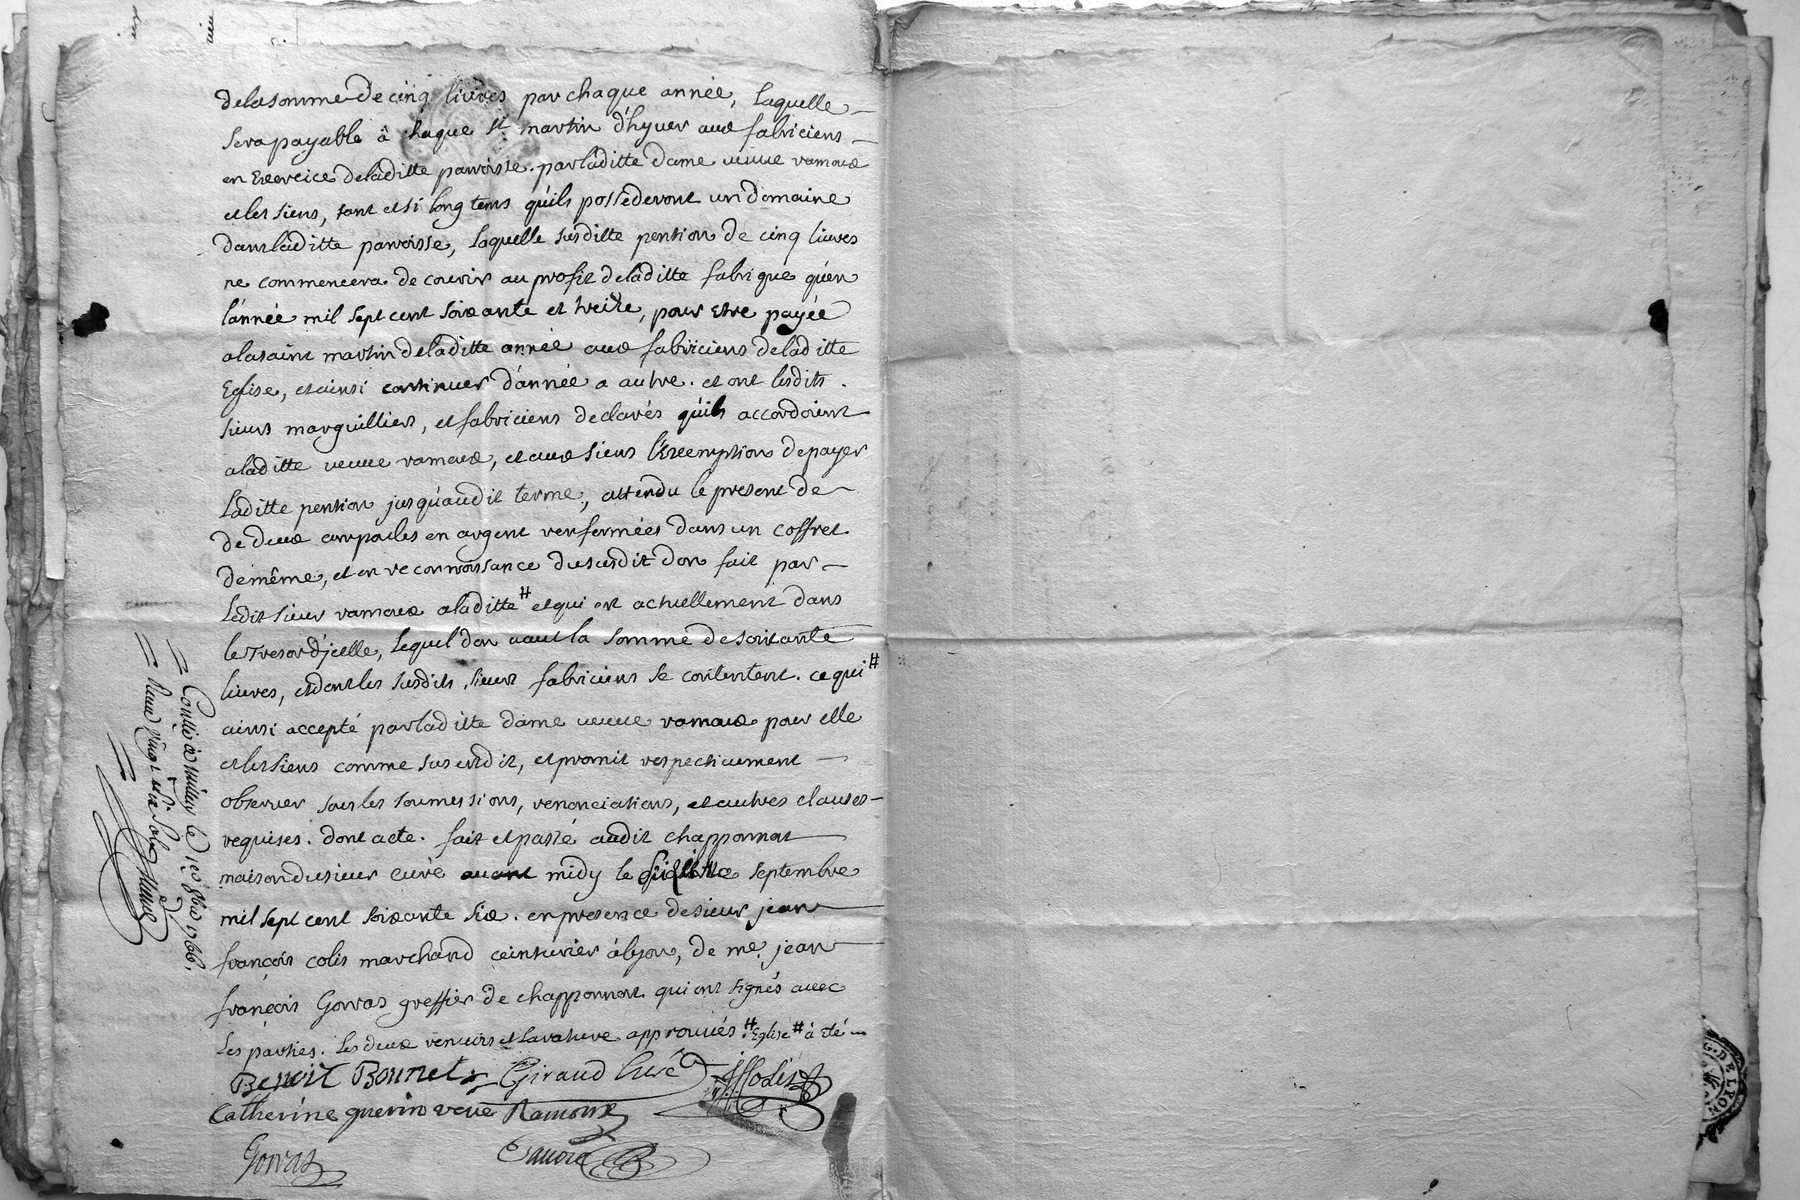 dela somme de cinq livres par chaque année, laquelle
sera payable à chaque St martin d'hyver aux fabriciens
en Exercice deladitte parroisse. par laditte dame veuve ramoux
et les siens, tant et si long tems qu'ils possederont un domaine
dans laditte parroisse, laquelle susditte pention de cinq livres
ne commencera de courir au profit deladitte fabrique qu'en
l'année mil sept cent soixante et treize, pour Etre payée
ala saint martin deladitte année aux fabriciens deladitte
Eglise, et ainsi continuer d'année a autre. et ont lesdits
sieurs marguilliers, et fabriciens declarés qu'ils accordoient
aladitte veuve ramoux, et aux siens l'Exemption de payer
laditte pention jusqu'audit terme, attendu le present de
de deux en argent renfermées dans un coffret
de même, et en reconnoissance dususdit don fait par
ledit sieur ramoux aladitte # et qui est actuellement dans
le Tresor d'jcelle, lequel don vaut la somme de soixante
livres, et dont les susdits sieurs fabriciens se contentent. ce qui #
ainsi accepté par laditte dame veuve ramoux pour elle
et les siens comme sus est dit, et promit respectivement
observer sous les soumissions, renonciations, et autres clauses
requises. dont acte. fait et passé audit chapponnost
maison du sieur curé avant midy le septembre
mil sept cent soixante six. en presence de sieur jean
françois colis marchand ceinturier à lyon, de me. jean
françois Gorras greffier de chapponnost qui ont signés avec
les parties. les deux renvois et la rature approuvés # Eglise # à été
Benoit Bonnet Giraud Curé
Catherine guerin veve Ramoux
Gorras
Conllé à le 7bre 1766.